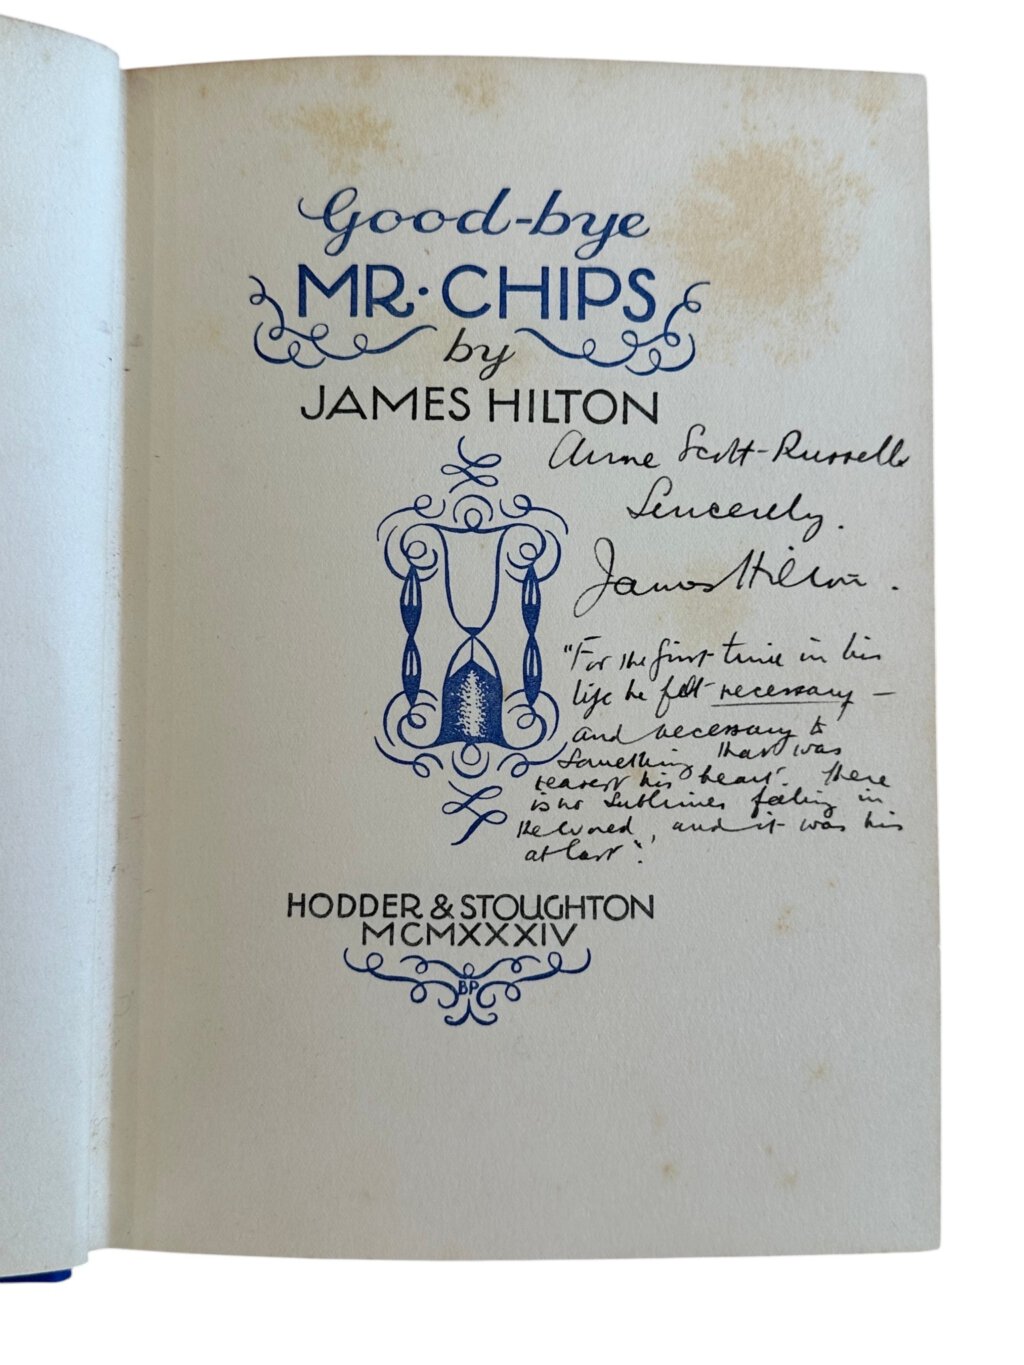 Good-bye
MR. CHIPS
by
JAMES HILTON
Anne Scott-Russell
Sincerely.
James Hilton.
"For the first time in his
life he felt necessary —
and necessary to
Something that was
nearest his heart. There
is no sublimer feeling in
the world, and it was his
at last".
HODDER & STOUGHTON
MCMXXXIV
BP